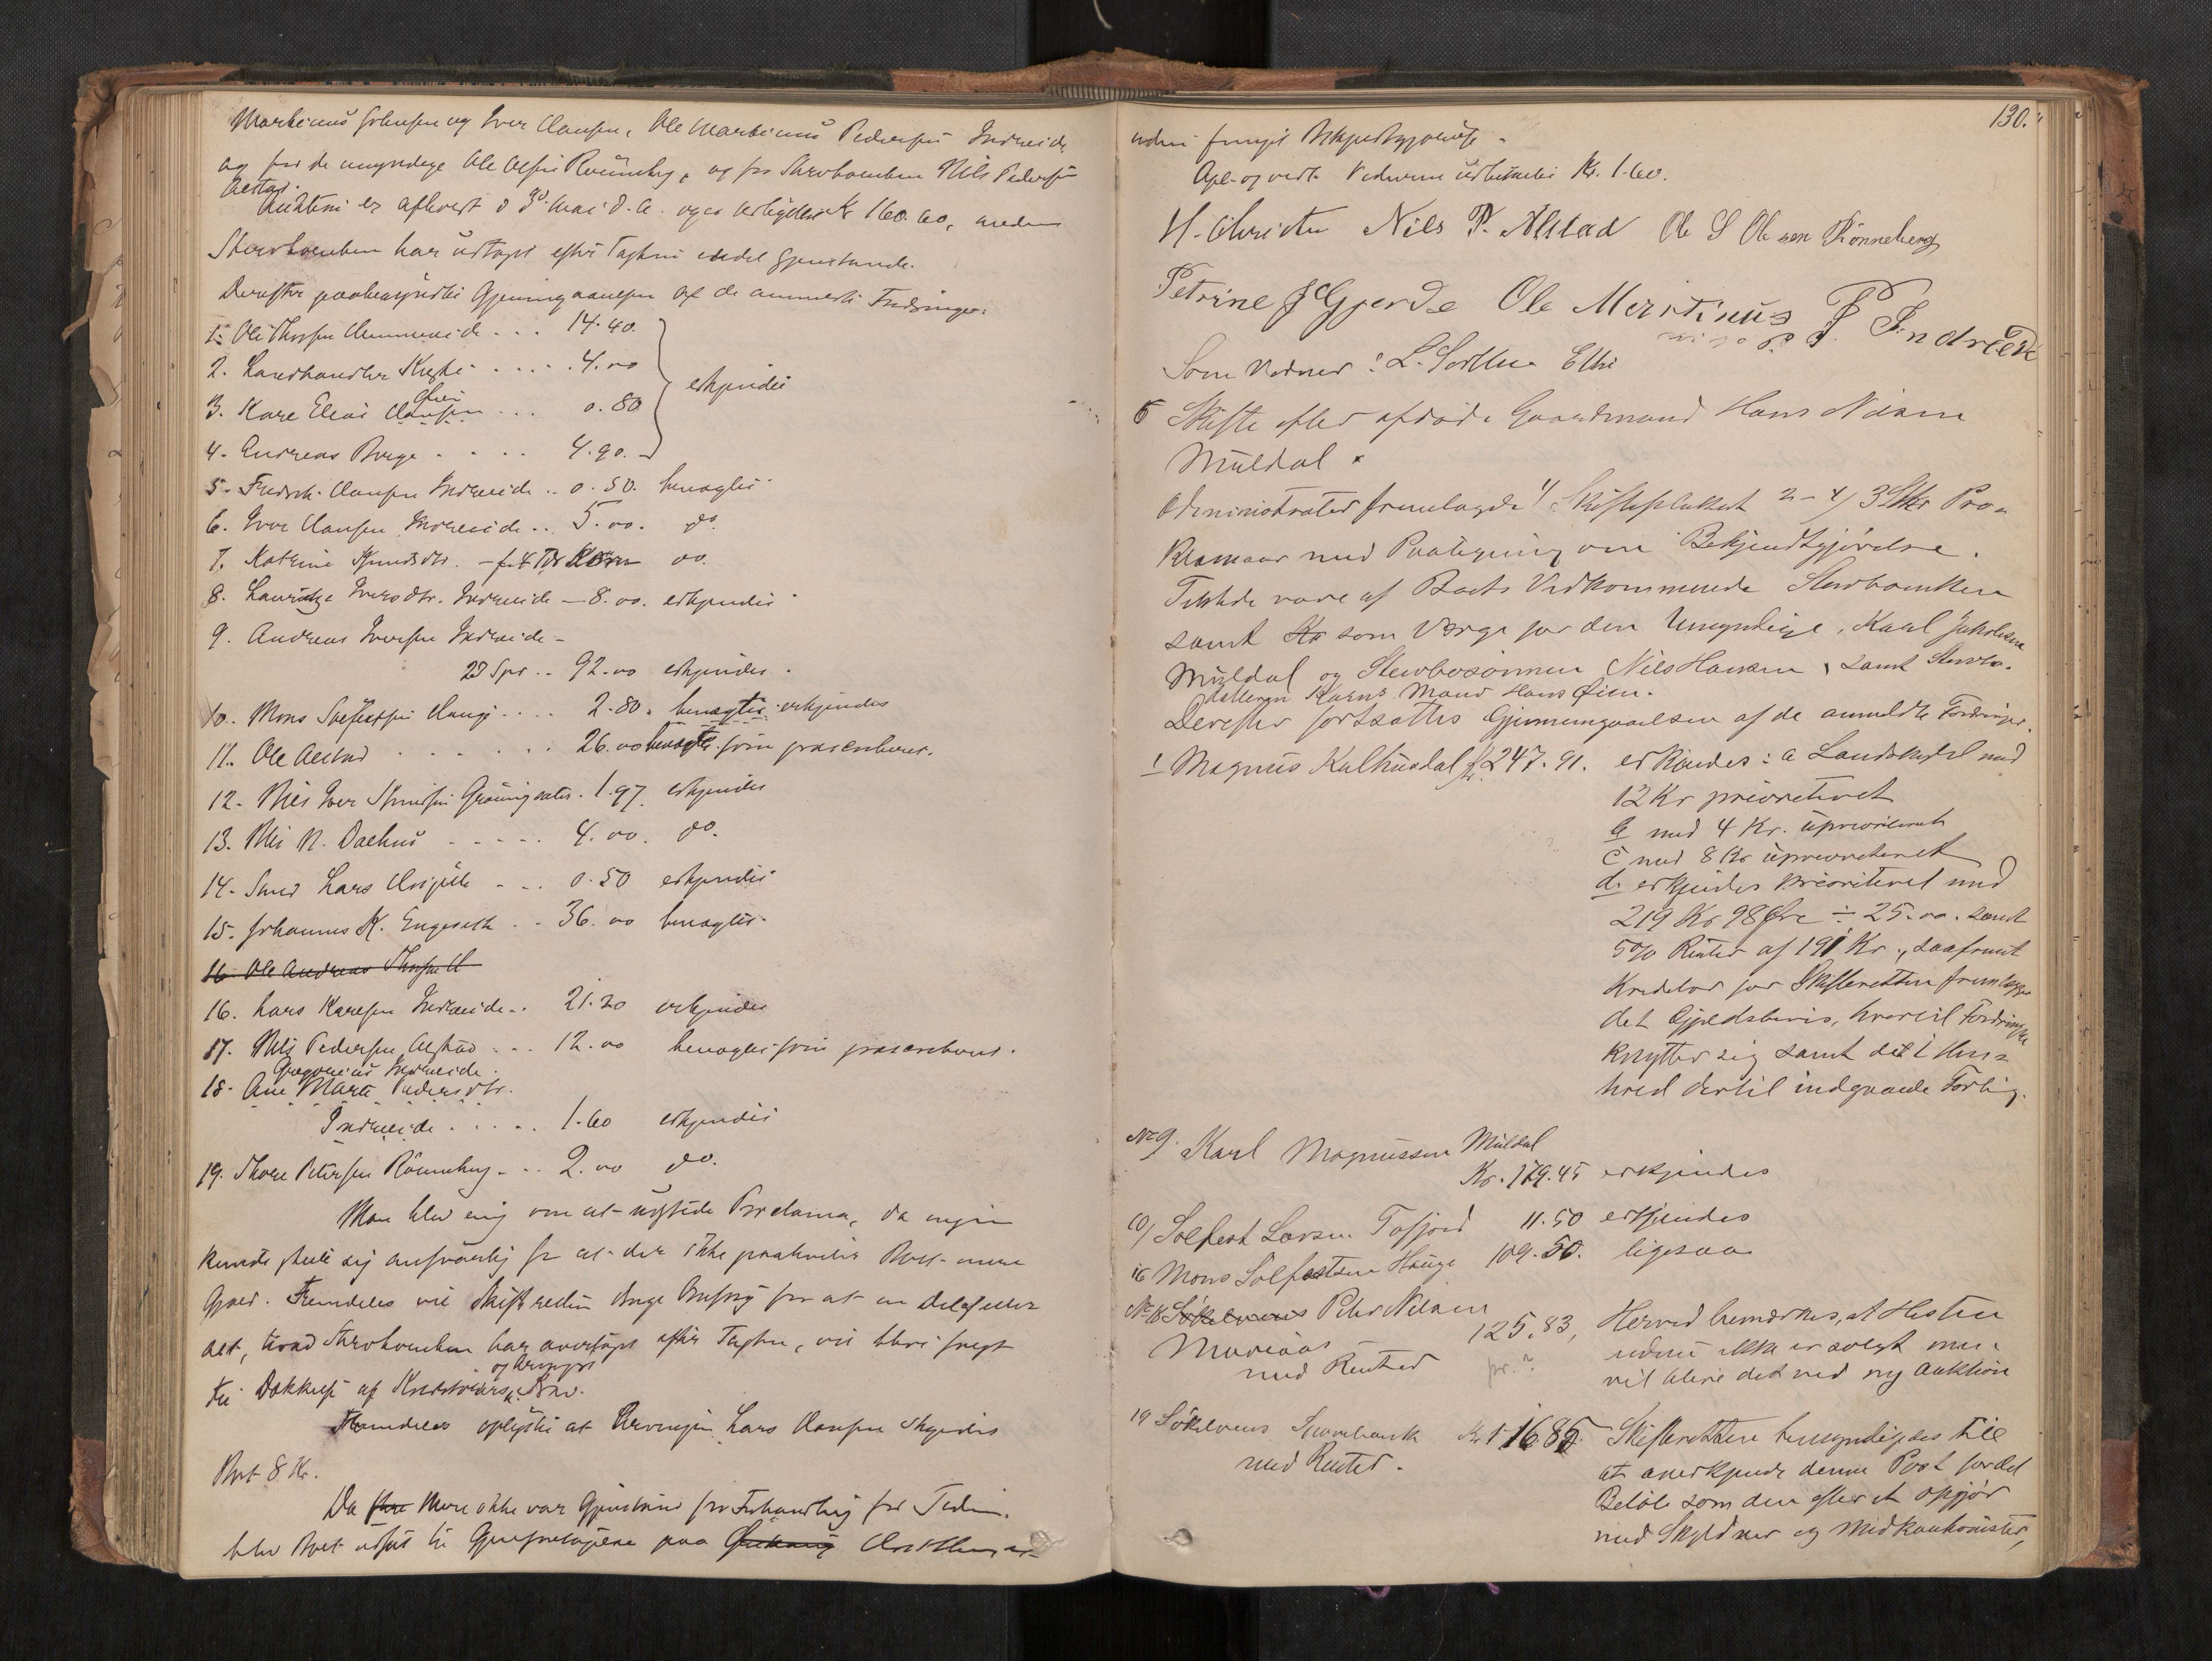 Martinus Johnsen og Iver Clausen, Ole Martinus Pedersen Indreeide
og for de umyndige Ole Olsen Rønneberg, og for Stervboenken Nils Pedersen
Alstad.
Auktion er afholdt d 30 Mai d. A. og er Udbyttet Kr 160.60, medens
Stervboenken har udtaget efter Taxten endel Gjenstande.
Derefter paabegyndtes Gjennemgaaelsen af de anmeldte Fordringer.
1. Ole Thorsen 14.40.
2. Landhandler 4.00
3. Kare Elias Clausen 0.80 erkjendes
4. Andreas Berge 4.90.
5. Fredrik Clausen Indreeide 0.50. benægtes
6. Iver Clausen Indreeide 5.00. do.
7. Katrine Knudsdtr. do.
8. Lauritze Iversdtr. Indreeide 8.00. erkjendes
9. Andreas Iversen Indreeide
23 Spd .. 92.00 erkjendes.
10. Mons Solfestsen Hauge .... 2.80. benægtes erkjendes
11. Ole Alstad 26.00 benægtes som præskriberet.
12. Nils Iver Knudsen 1.97 erkjendes
13. Nils N. Dalhus 4.00. do.
14. Lars 0.50 erkjendes
15. Johannes K. Engeseth .. 36.00 benægtes.
16 Ole Andreas
16. Lars Karlsen Indreeide .. 21.20 erkjendes
17. Nils Pedersen Alstad ... 12.00 benægtes som præskriberet.
Indreeide.
18. Ane Marta Pedersdtr.
Indreeide ..... 1.60 erkjendes
19. Thore Petersen Rønneberg ... 2.00 do.
Man blev enig om at udstede Proclama, da ingen
kunde stille sig ansvarlig for at der ikke paahviler Boet mere
Gjæld. Fremdeles vil Skifteretten drage Omsorg for at en Del eller
alt, hvad Stervboenken har overtaget efter Taxten, vil blive solgt
og Arvingers
til Dækkelse af Kreditorers Krav.
Fremdeles oplystes at Arvingen Lars Clausen skyldte
Boet 8 Kr.
Da mere ikke var Gjenstand for Forhandling for Tiden
blev Boet udsat til Gjenforetagelse paa
130.
uden forngn Bekjendtgjørelse.
Opl. og vedt. Vidnerne udbetaltes Kr. 1.60.
H. Christie Nils P. Alstad Ole S Olesen Rønneberg
Petrine J Gjerde Ole Mertinus P Indreeide
Som Vidner: L. Sortlun
5 Skifte efter afdøde Gaardmand Hans Nilsen
Muldal.
Administrator fremlagde 1) Skifteplakat 2-4) 3 Stkr Pro-
klamaer med Paategning om Bekjendtgjørelse.
Tilstede vare af Boets Vedkommende Stervboenken
samt Kr som Værge for den Umyndige, Karl Jakobsen
Muldal og Stervbosønnen Nils Hansen, samt Stervbo-
datteren Karens Mand Hans Øien.
Derefter fortsattes Gjennemgaaelsen af de anmeldte Fordringer.
1 Magnus Kalhusdal Kr. 247.91. erkjendes: a Landskyld med
12 Kr prioriteret
b med 4 Kr. uprioriteret
c med 8 Kr uprioriteret
d. erkjendes prioriteret med
219 Kr 98 Øre ÷ 25.00. samt
5% Renter af 191 Kr., saafremt
Kreditor for Skifteretten fremlægger
det Gjældsbevis, hvortil Fordringen
knytter sig samt det i Hen-
hold dertil indgaaede Forlig.
No 9. Karl Magnussen Muldal
Kr. 179.45 erkjendes
10) Solfest Larsen Tafjord 11.50 erkjendes
16 Mons Solfestsen Hauge 109.50. ligesaa
No 18 Søkelvens Peter Nilsen
125.83, Herved bemærkes, at Hesten
endnu ikke er solgt men
med Renter pr. ? vil blive det ved ny Auktion
19 Søkelvens Sparebank Kr 1168 Skifteretten bemyndiges til
med Renter. at anerkjende denne Post for det
Beløb som den efter et Opgjør
med Skyldner og Medkautionister,